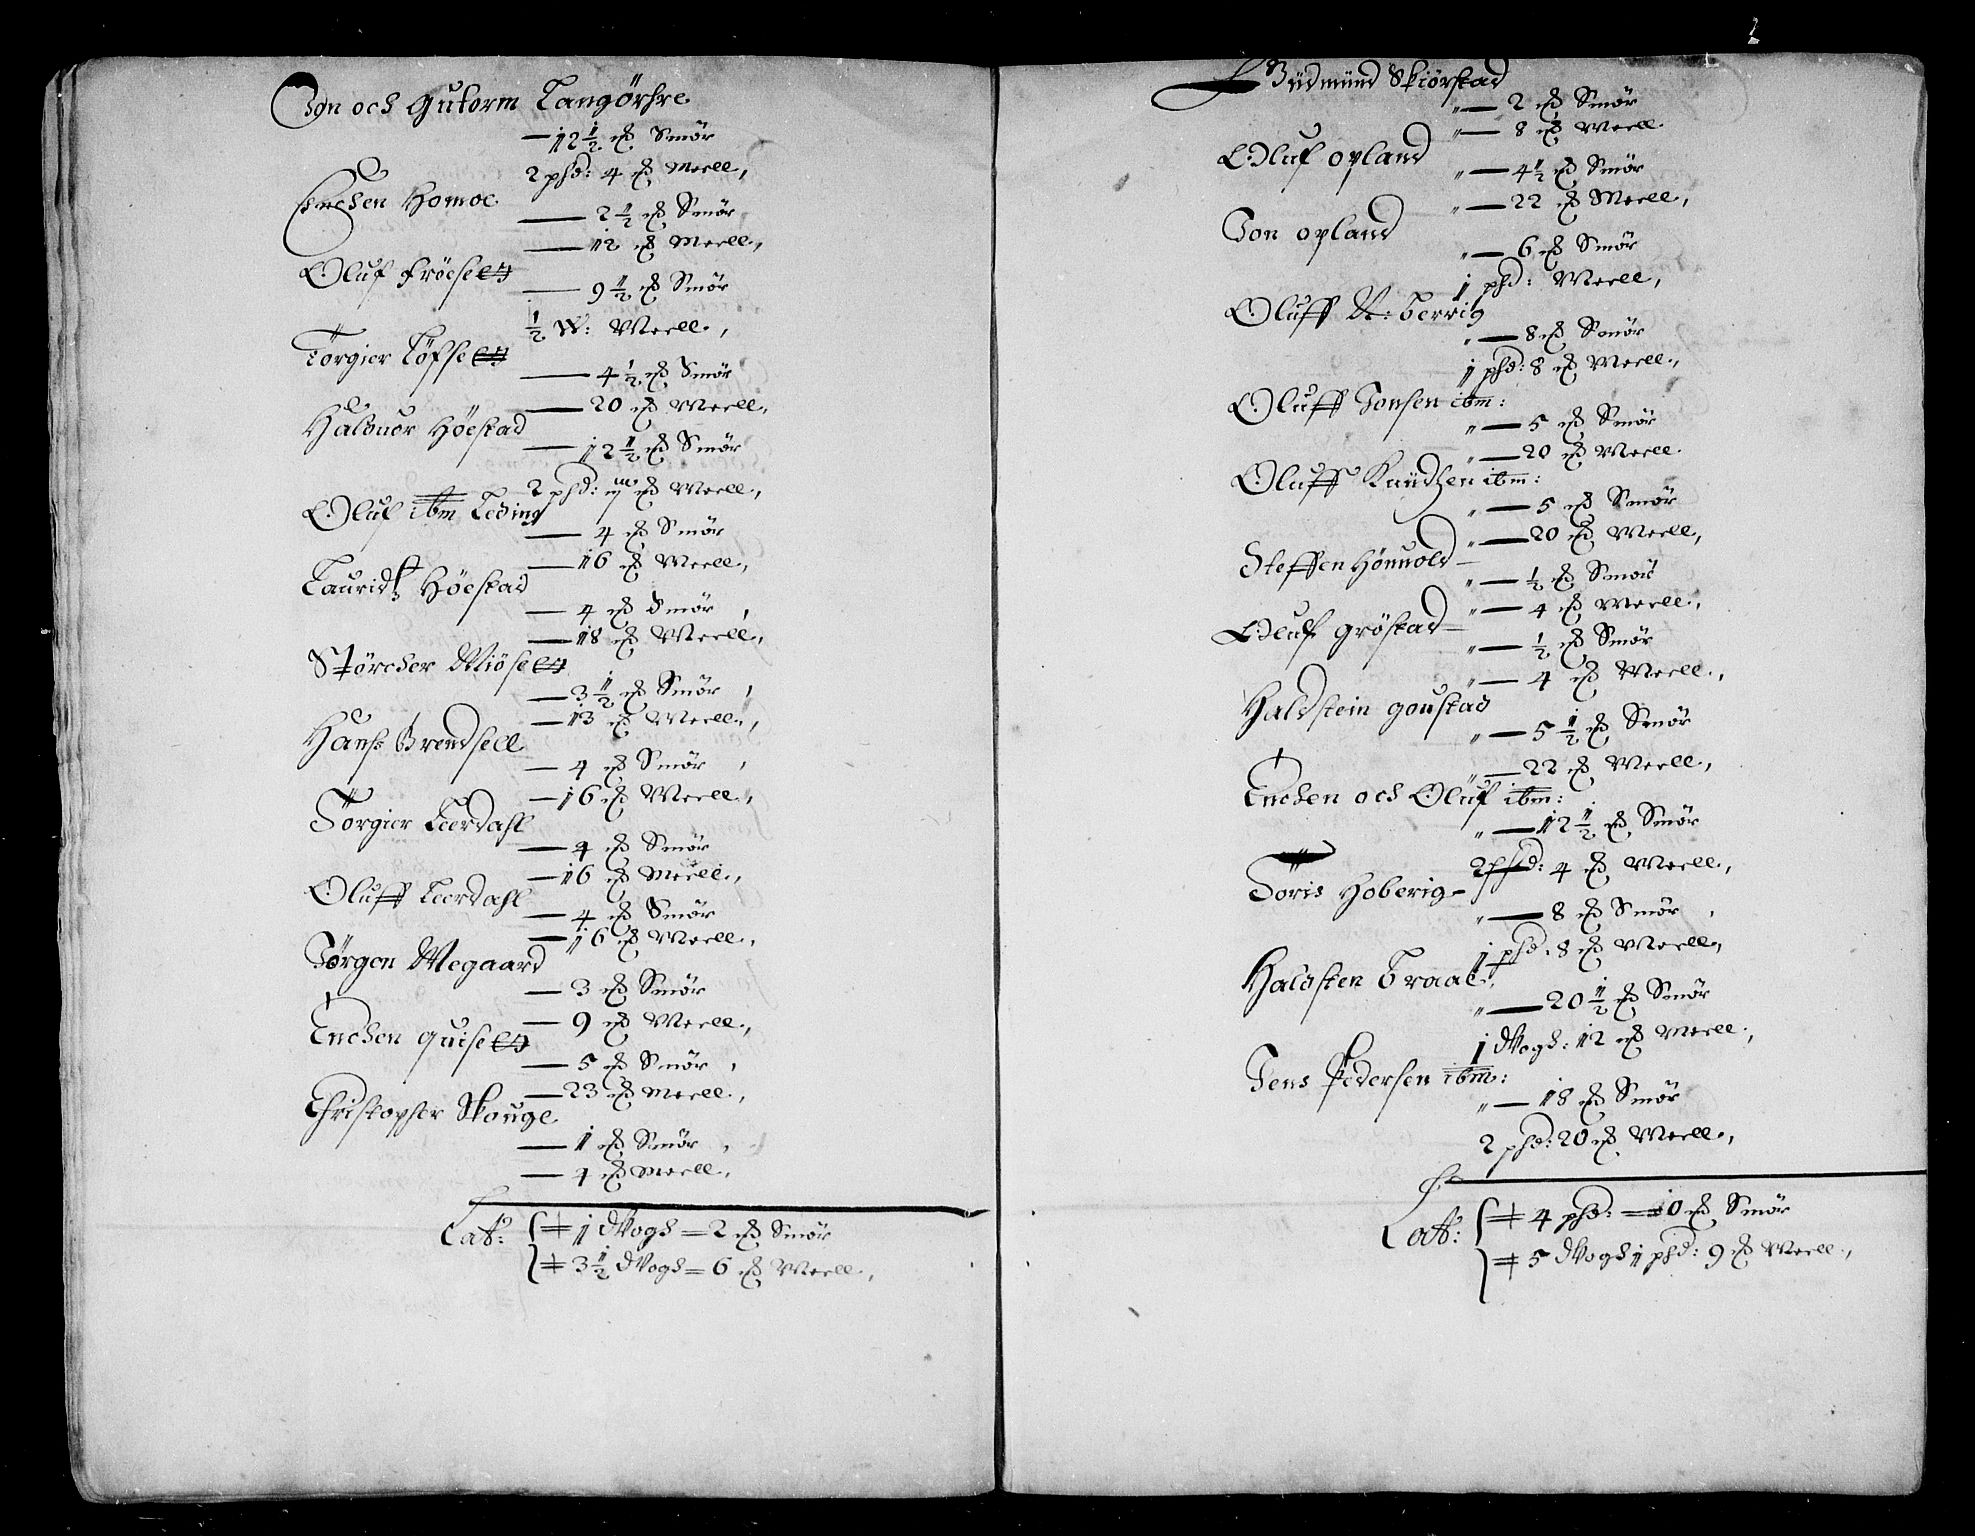 Jon och Gutorm Langørhre
— 12 1/2 ℔ Smör
2 phd: 4 ℔ Meell,
Enchen Homoe
— 2 1/2 ℔ Smör
— 12 ℔ Meell,
Oluf fröese
— 9 1/2 ℔ Smör
1/2 W: Meell,
Torgier Löfse
— 4 1/2 ℔ Smör
— 20 ℔ Meell,
Haluor Höestad
— 12 1/2 ℔ Smör
2 phd: ℔ Meell,
Oluf ibm Leding
— 4 ℔ Smör
— 16 ℔ Meell,
Lauridtz Höestad
— 4 ℔ Smör,
— 18 ℔ Meell,
Störcher Miöse
— 3 1/2 ℔ Smör,
— 13 ℔ Meell,
Hanss Brendsell
— 4 ℔ Smör,
— 16 ℔ Meell,
Törgier Leerdahl
— 4 ℔ Smör
— 16 ℔ Meell,
Oluff Leerdahl
— 4 ℔ Smör
— 16 ℔ Meell,
Jørgen Wegaard
— 3 ℔ Smör
— 9 ℔ Meell,
Enchen quise
— 5 ℔ Smör,
— 23 ℔ Meell,
Christopher Skouge
— 1 ℔ Smör,
— 4 ℔ Meell,
Latt: 1 Wogh = 2 ℔ Smör
3 1/2 Wogh = 6 ℔ Meell,
Gudmund Skiörstad
„— 2 ℔ Smör
„— 8 ℔ Meell.
Oluf opland
„— 4 1/2 ℔ Smör
„— 22 ℔ Meell,
Jon opland
„— 6 ℔ Smör
1 phd: Meell,
Oluff N: berrig
„— 8 ℔ Smör
1 phd: 8 ℔ Meell,
Oluff Jonsen ibm:
„— 5 ℔ Smör
„— 20 ℔ Meell.
Oluff Knudtzen ibm:
„— 5 ℔ Smör
„— 20 ℔ Meell,
Steffen Hönuold —
„— 1/2 ℔ Smör
„— 4 ℔ Meell,
Oluf gröstad —
„— 1/2 ℔ Smör
„— 4 ℔ Meell,
Haldstein goustad
„— 5 1/2 ℔ Smör
„— 22 ℔ Meell,
Enchen och Oluf ibm:
„— 12 1/2 ℔ Smör
2 phd: 4 ℔ Meell,
Toris Hoberig —
„— 8 ℔ Smör,
1 phd: 8 ℔ Meell,
Haldsten Braat
„— 20 1/2 ℔ Smör
1 Wogh: 12 ℔ Meell,
Jens Pedersen ibm:
„— 18 ℔ Smör
2 phd: 20 ℔ Meell,
Latt: 4 phd: = 10 ℔ Smör
5 Wogh 1 phd: 9 ℔ Meell,